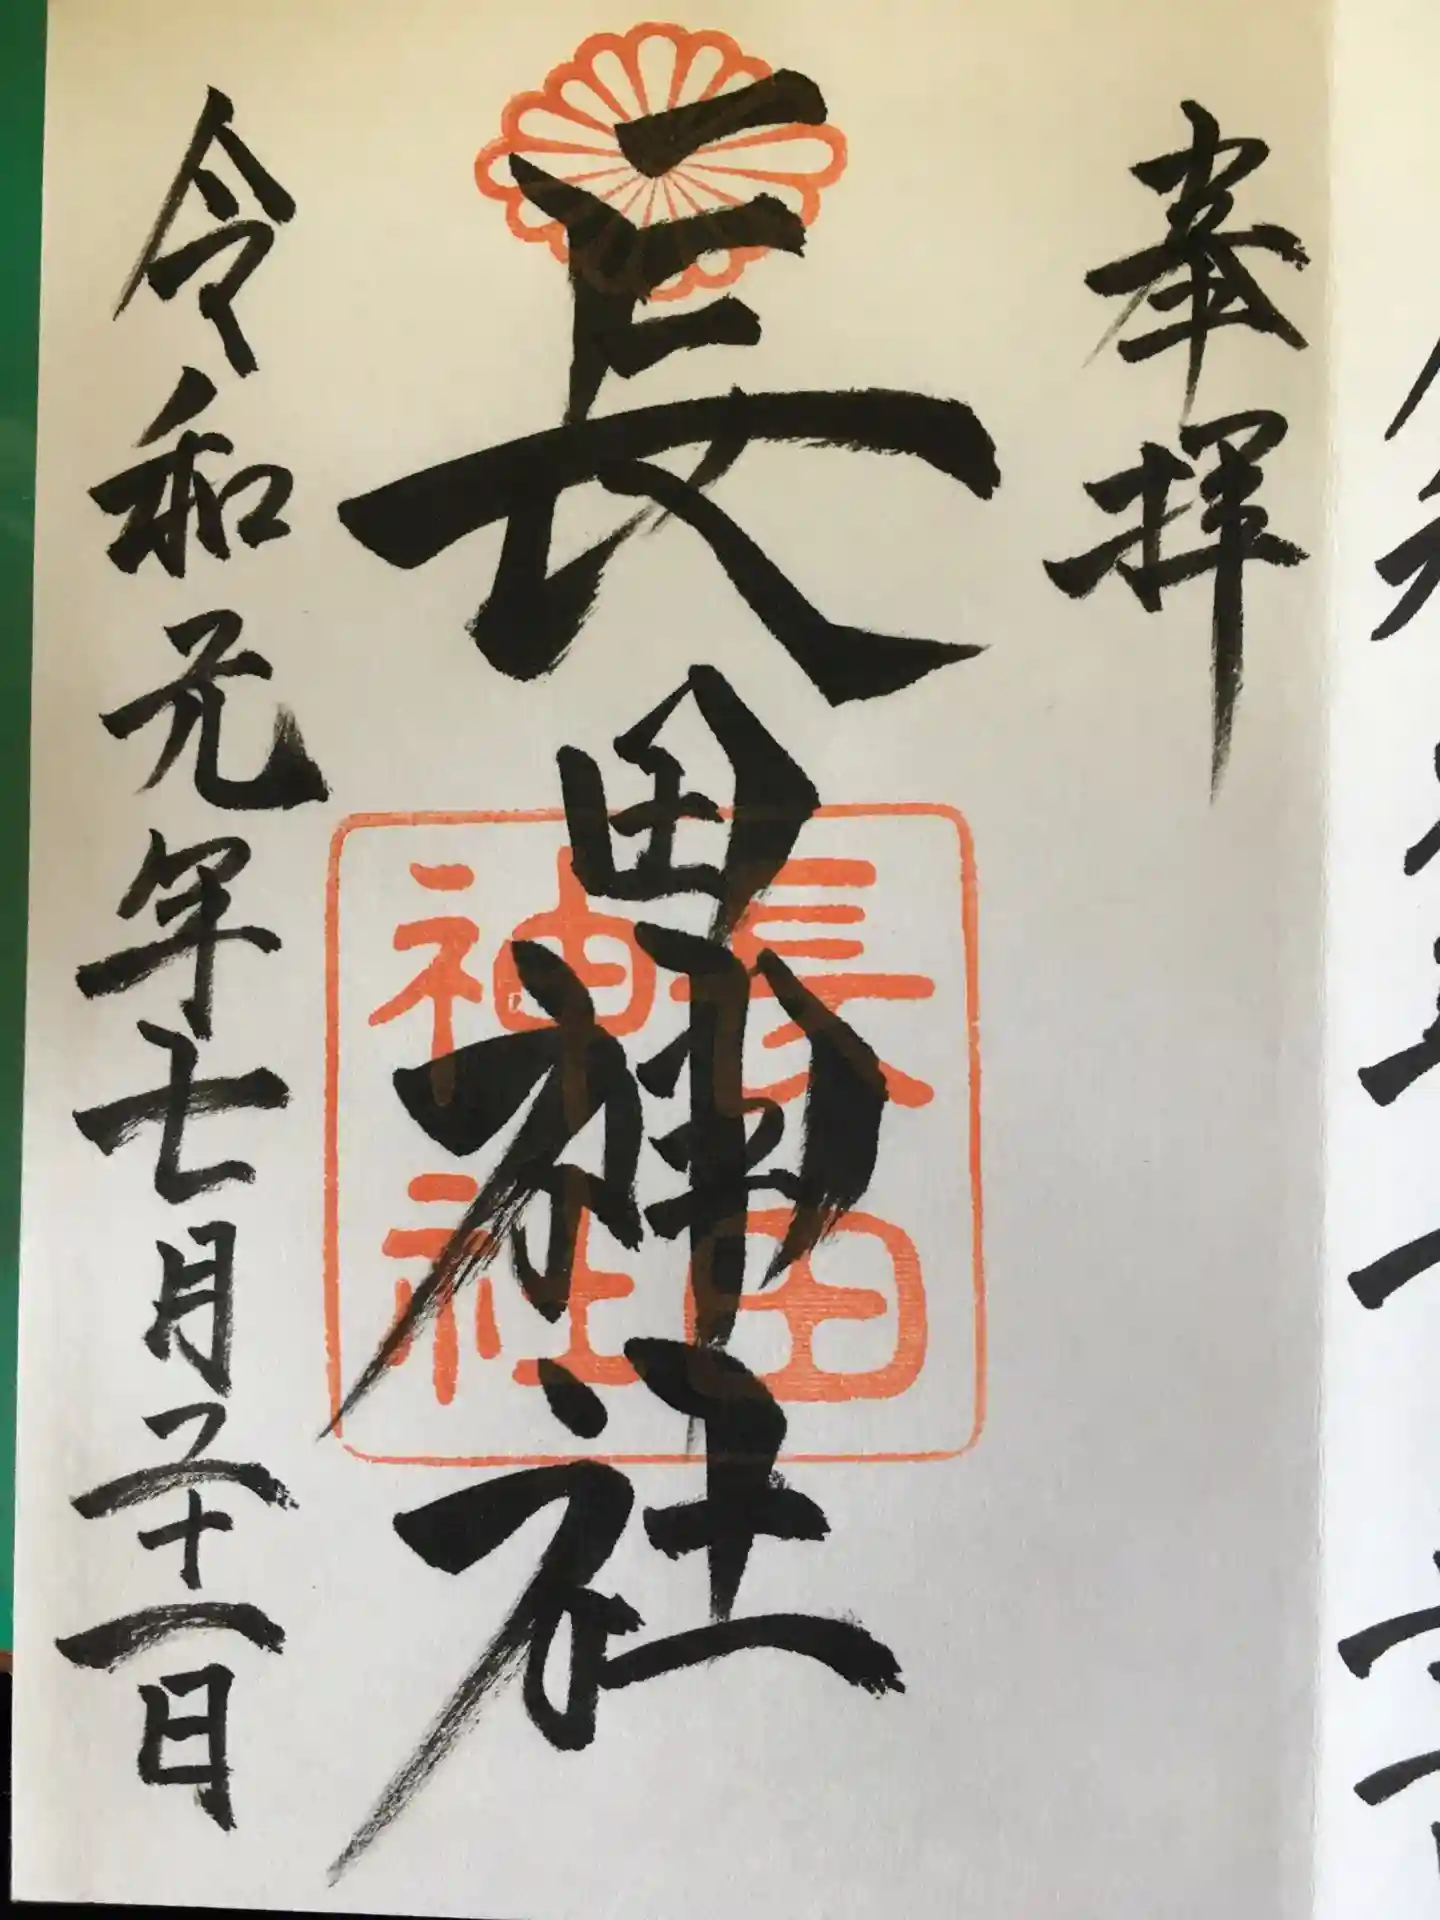 奉拝
長田神社
長田
神社
令和元年七月二十一日